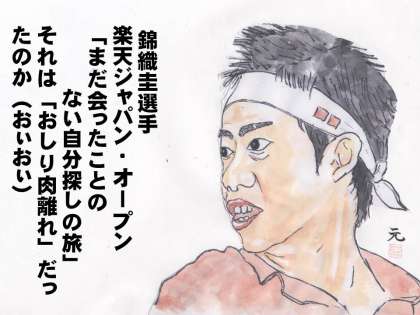 錦織圭選手
楽天ジャパン・オープン
「まだ会ったことの
ない自分探しの旅」
それは「おしり肉離れ」だっ
たのか（おぃおぃ）
元